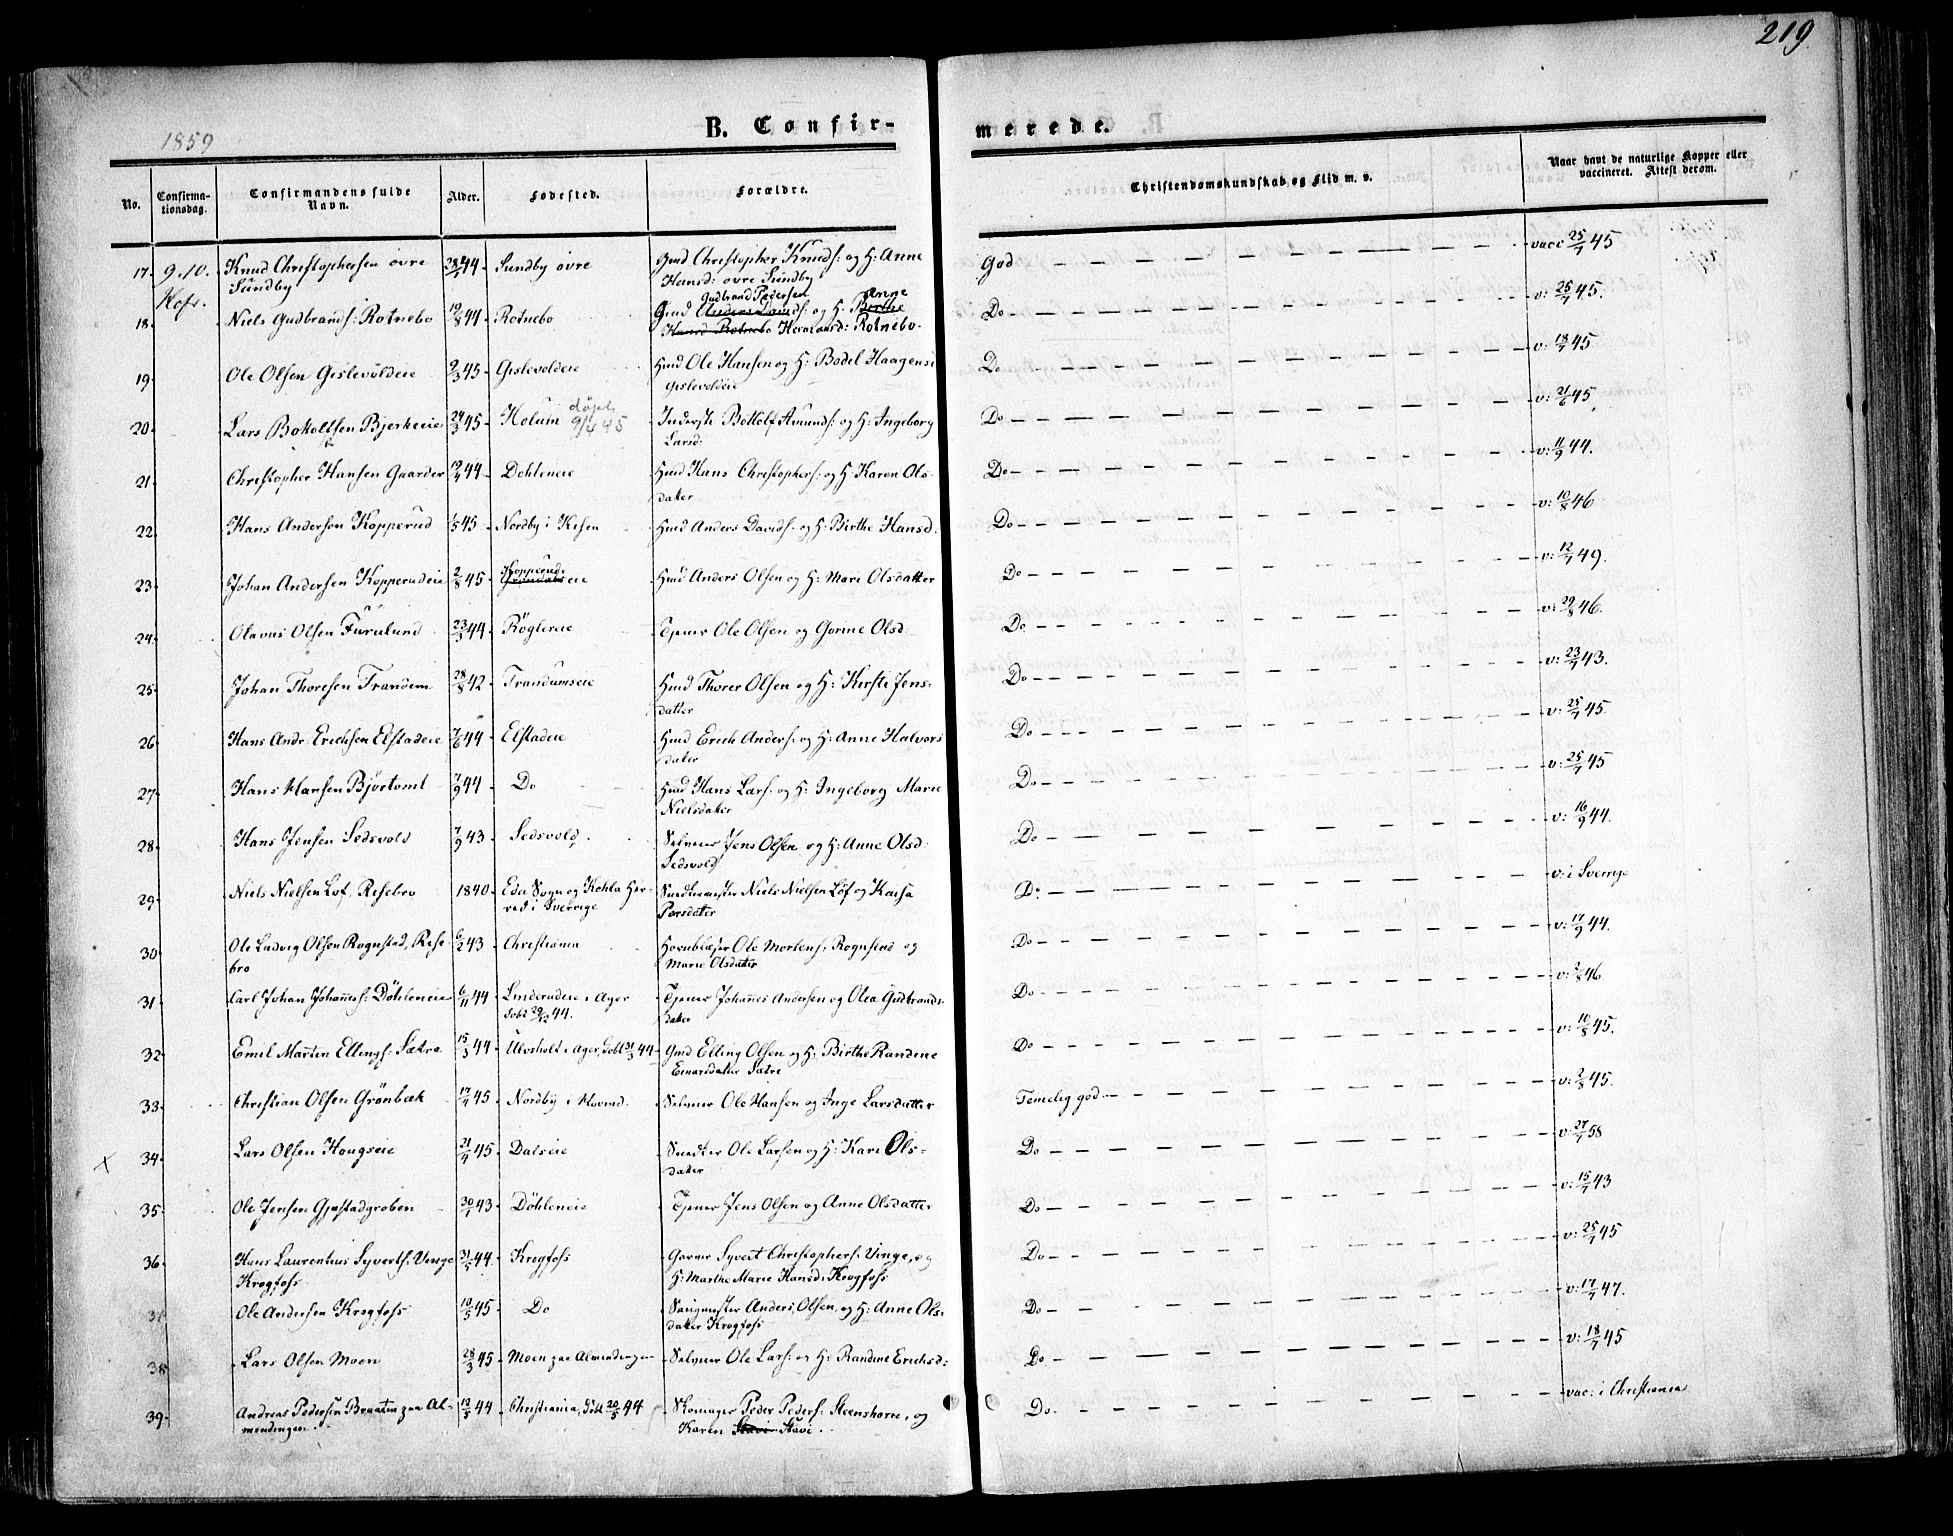 219
1859
B. Confir-
merede.
No.
Confirma-
tionsdag.
Confirmandens fulde
Navn.
Alder.
Fødested.
Forældre.
Christendomskundskab og Flid m. v.
Naar havt de naturlige Kopper eller
vaccineret. Attest derom.
17. 9.10. Knud Christophersen övre 44 Sundby övre Gmd Christopher Knuds: og H: Anne God vacc 25/7 45
Sundby Hansd: övre Sundby
Kofr. Gudbrand Pedersen Anne
18. Niels Gudbrands: Rotnebo 19/8 44 Rotnebo Gmd og H: Birthe Do v: 25/7 45.
Hansd Rotnebo Hermansd: Rotnebo.
19. Ole Olsen Gislevoldeie 9/3 45 Gislevoldeie Hmd Ole Hansen og H: Bodel Haagensd Do v: 18/7 45
Gislevoldeie
20. Lars Bottolfsen Bjerkeeie 24/3 45 Holum döpt 9/4 45 Inderste Bottolf Amunds: og H: Ingeborg Do v: 21/6 45.
Larsd:
21. Christopher Hansen Gaarder 19/4 44 Dohleneie Hmd Hans Christophers: og H: Karen Ols- Do v: 11/9 44.
datter
22. Hans Andersen Kopperud 1/5 45 Nordby i Kisen Hmd Anders Davids: og H: Birthe Hansd. Do v: 10/8 46
23. Johan Andersen Kopperudeie 2/8 45 Kopperudeie Hmd Anders Olsen og H: Mari Olsdatter Do v: 12/7 49.
24. Olavus Olsen Furulund 23/3 44 Röglereie Tjener Ole Olsen og Gorine Olsd Do v: 29/8 46.
25. Johan Thoresen Trandem 28/8 42 Trandumseie Hmd Thorer Olsen og H: Kirsti Jens- Do v: 23/7 43.
datter
26. Hans Andr: Erichsen Elstadeie 7/6 44 Elstadeie Hmd Erich Anders: og H: Anne Halvors Do v: 25/7 45.
datter
27. Hans Hansen Bjørtomt 7/9 44 Do Hmd Hans Lars: og H: Ingeborg Marie Do v: 25/7 45
Nielsdatter
28. Hans Jensen Sedsvold 7/9 43 Sedsvold. Selveier Jens Olsen og H: Anne Olsd: Do v: 16/9 44.
Sedsvold
29. Niels Nielsen Löf, Risebro 1840. Eda Sogn og Kohla Her- Smedemester Niels Nielsen Löf og Kaisa Do v: i Sverrige
red i Sverrige Persdatter
30. Ole Ludvig Olsen Rognstad, Rise- 6/2 43 Christiania Hornblæser Ole Mortens: Rognstad og Do v: 17/9 44.
bro Marie Olsdatter
31. Carl Johan Johannes: Döhleneie 6/11 44 Linderudeie i Ager Tjener Johannes Andersen og Olea Gudbrands- Do v: 46
döbt 29/12 44. datter
32. Emil Martin Ellings: Sætre 15/3 44 Ulvsholt i Ager, döbt 31/3 44 Gmd Elling Olsen og H: Birthe Randine Do v: 10/8 45.
Einarsdatter Sætre
33. Christian Olsen Grönbæk 17/4 45 Nordby i Hovind. Selveier Ole Hansen og Inge Larsdatter Temelig god v: 2/8 45.
x 34. Lars Olsen Hougseie 21/4 45 Dalseie Smed Ole Larsen og H: Kari Ols- Do v: 27/7 58
datter
35. Ole Jensen Gjestadgroben 30/1 43 Döhleneie Tjener Jens Olsen og Anne Olsdatter Do v: 15/7 43
36. Hans Laurentius Syverts: Vinge 44 Krogfoss Garver Syvert Christophers: Vinge, og Do v: 25/7 45
Krogfoss H: Marthe Marie Hansd: Krogfoss
37. Ole Andersen Krogfoss 10/5 45 Do Saugmester Anders Olsen, og H: Anne Ols- Do v: 17/7 47.
datter Krogfoss
38. Lars Olsen Moen 28/3 45 Moen paa Almindingen Selveier Ole Lars: og H: Randine Erichsd: Do v: 18/7 45
39. Andreas Pedersen Braaten paa Al- 12/5 44 Christiania, döbt 20/5 44 Skomager Peder Peders: Steenshorn, og Do. vac: i Christiania
mindingen Karen Stavi.